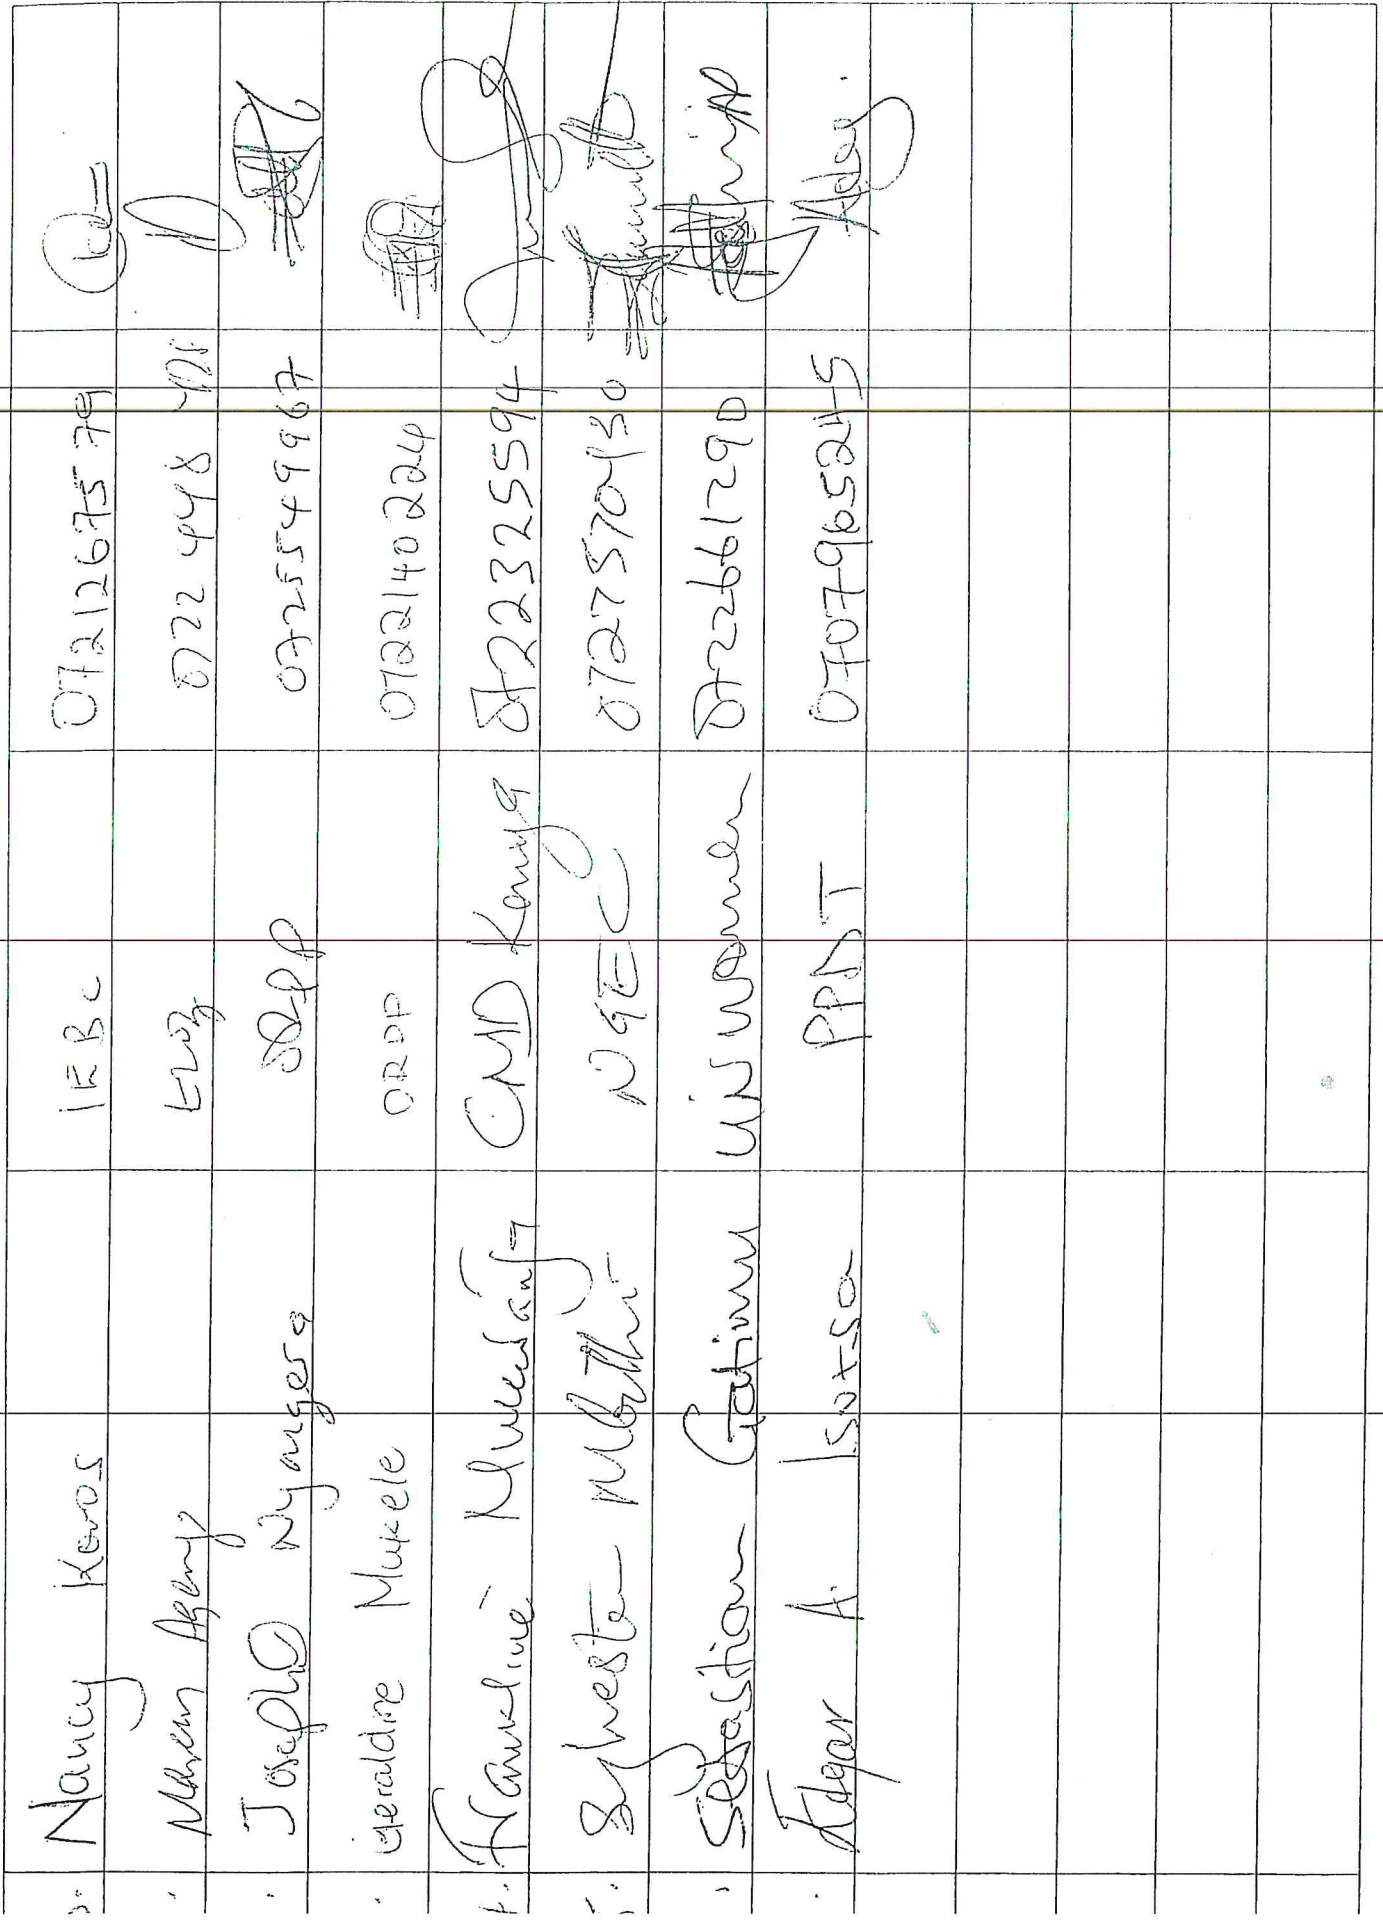 Nancy Koros IEBC 0721267579
0722 498
Joseph Nyangera ODPP 0725549967
Geraldine Mukele ORPP 0722140224
Frankline Mukwanja CMD Kenya 0722325594
Sylvester Mbithi NGEC 0727570430
Sebastian Gatimu UN Women 0722661290
Edgar A. Isutsa PPDT 0707965245